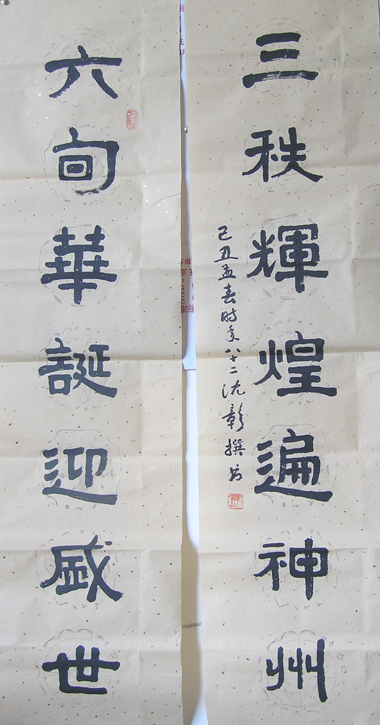 三秩輝煌遍神州
己丑孟春時年八十二沈彰撰書
六旬華誕迎盛世